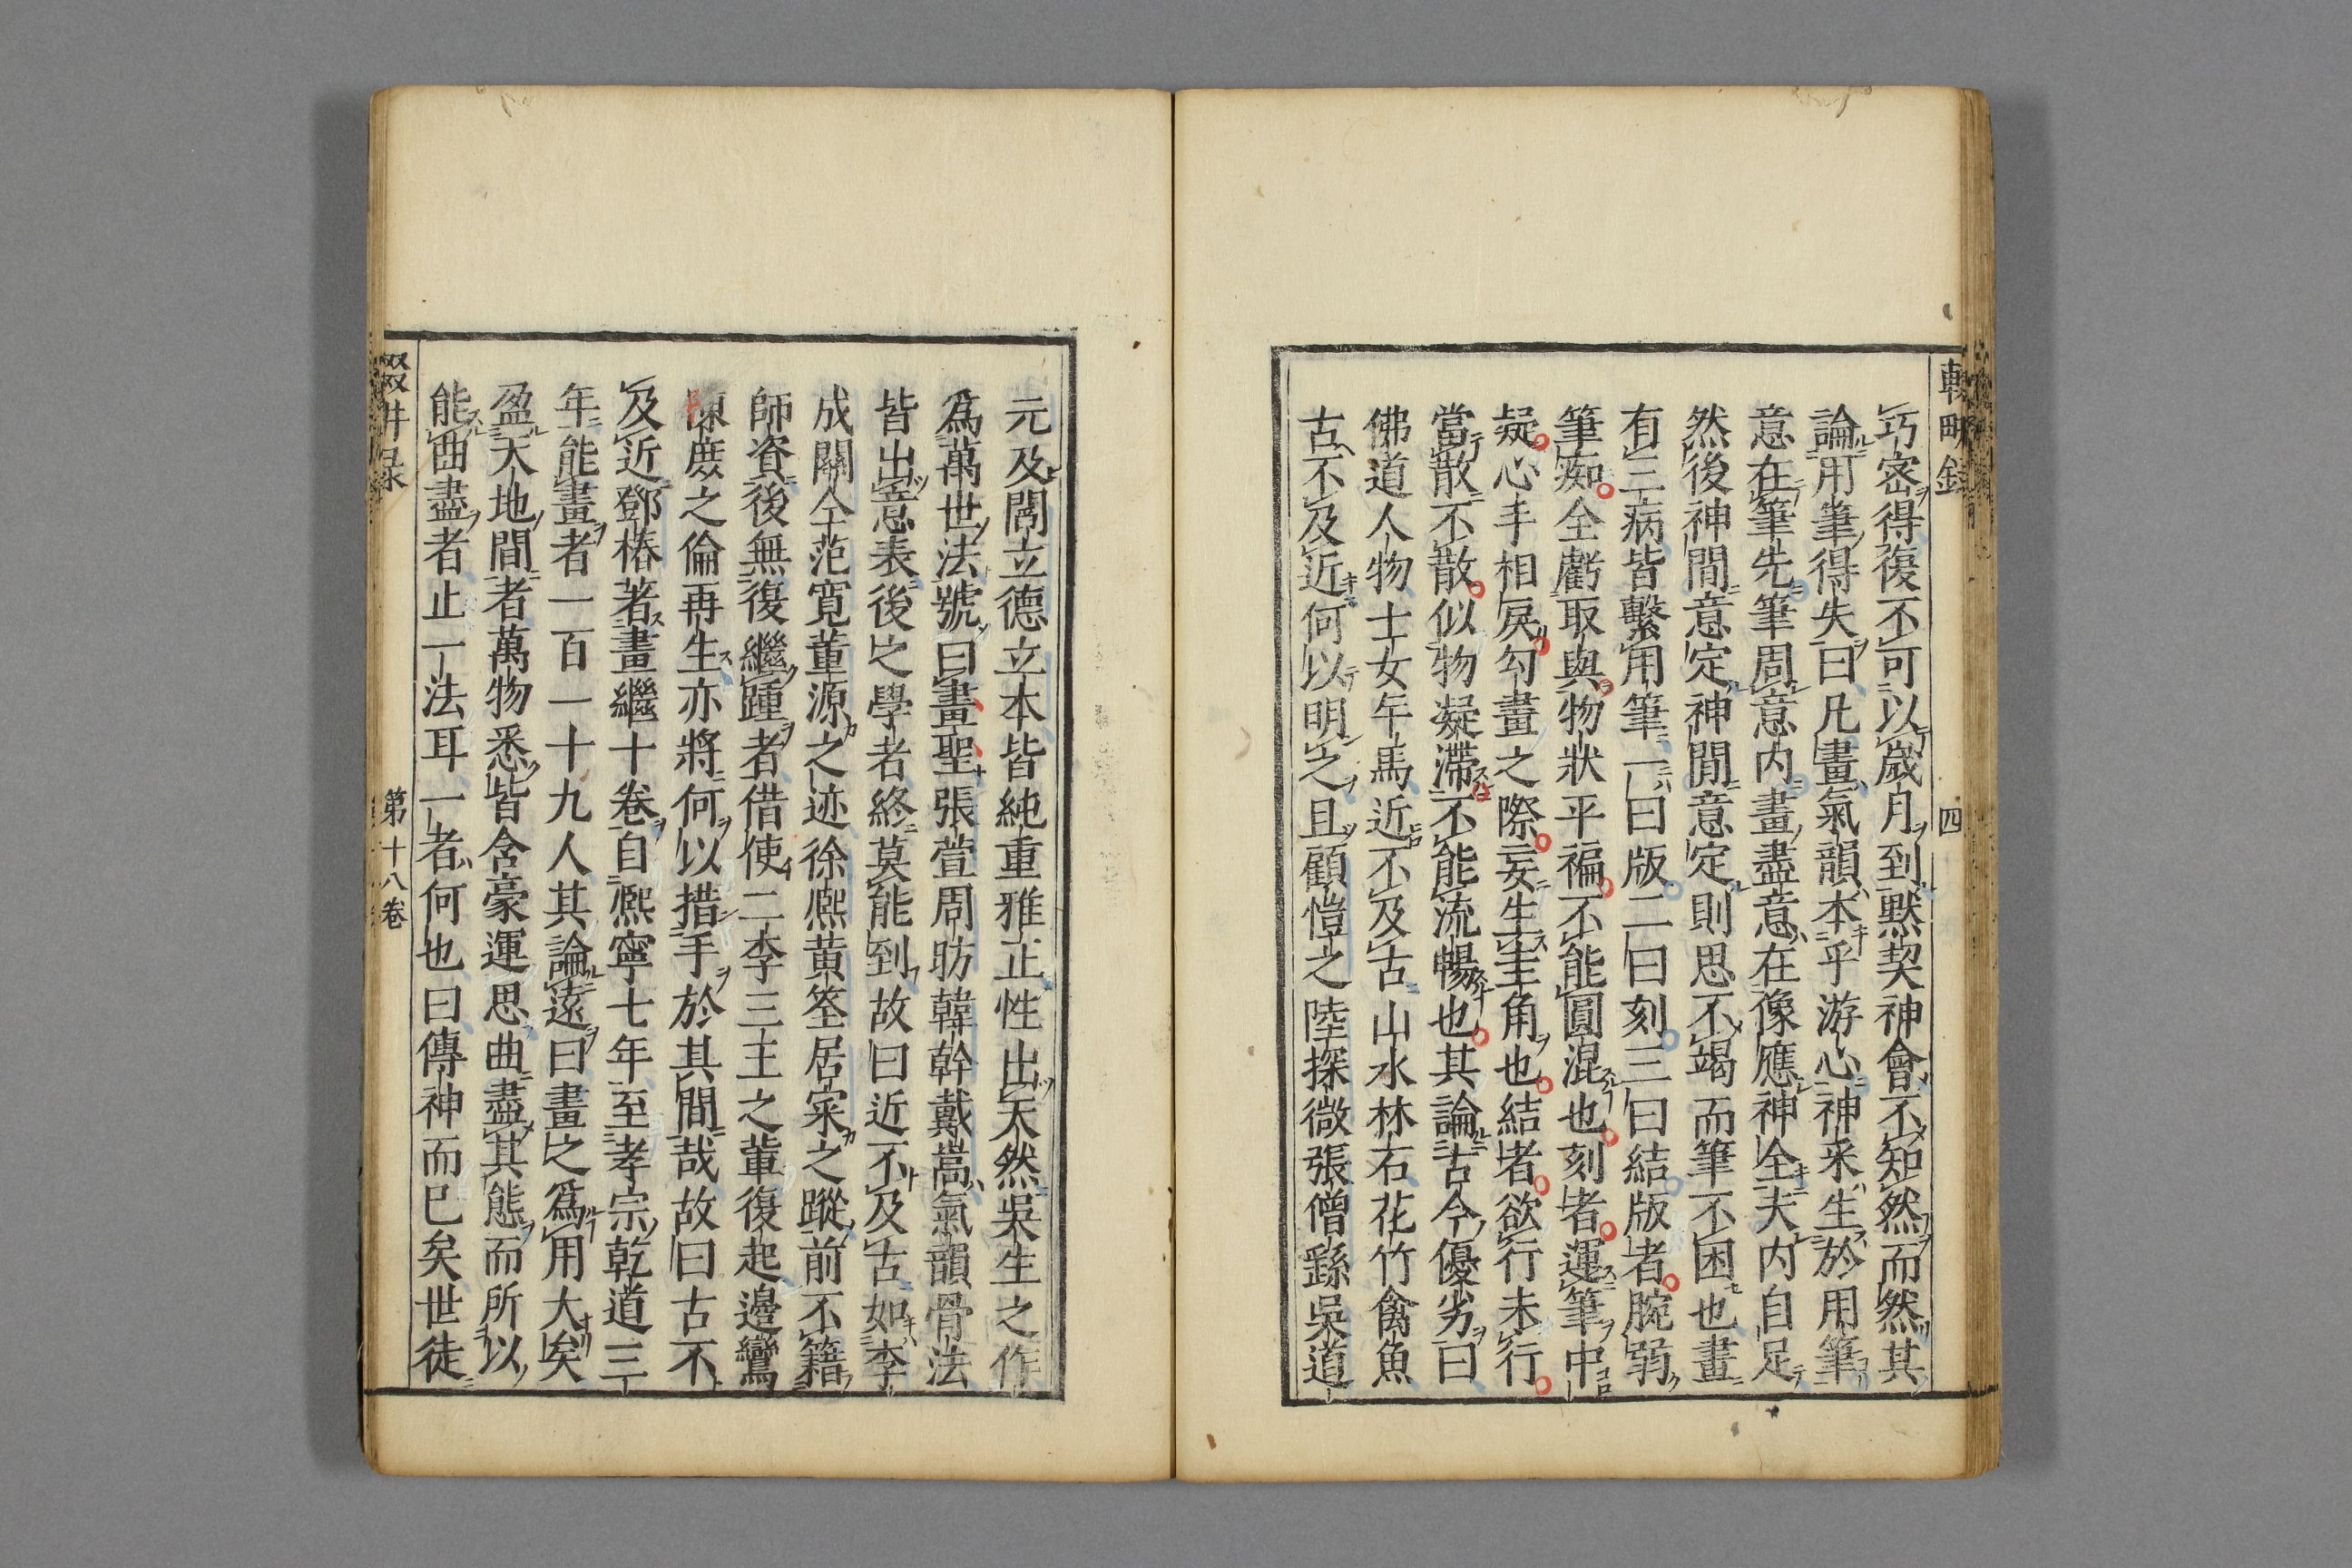 巧密得復不可以歲月到默契神會不知然而然其
論用筆得失曰凡畫氣韻本乎游心神采生於用筆
意在筆先筆周意内畫盡意在像應神全夫内自足
然後神閒意定神閒意定則思不竭而筆不困也畫
有三病皆繫用筆一曰版二曰刻三曰結版者腕弱
筆痴全虧取與物狀平褊不能圓混也刻者運筆中
疑心手相戾勾畫之際妄生圭角也結者欲行未行
當散不散似物凝滯不能流暢也其論古今優劣曰
佛道人物士女午馬近不及古山水林石花竹禽魚
古不及近何以明之且顧愷之陸探微張僧繇吳道
元及閻立德立本皆純重雅正性出天然吳生之作
爲萬世法號曰畫聖張萱周昉韓幹戴嵩氣韻骨法
皆出意表後之學者終莫能到故曰近不及古如李
成關仝范寬董源之迹徐熙黄筌居寀之蹤前不籍
師資後無復繼踵者借使二李三王之軰復起邊鸞
陳庶之倫再生亦將何以措手於其間哉故曰古不
及近鄧椿著畫繼十卷自熙寧七年至孝宗乾道三
年能畫者一百一十九人其論遠曰畫之爲用大矣
盈天地間者萬物悉皆含豪運思曲盡其態而所以
能曲盡者止一法耳一者何也曰傳神而已矣世徒
四
第十八卷